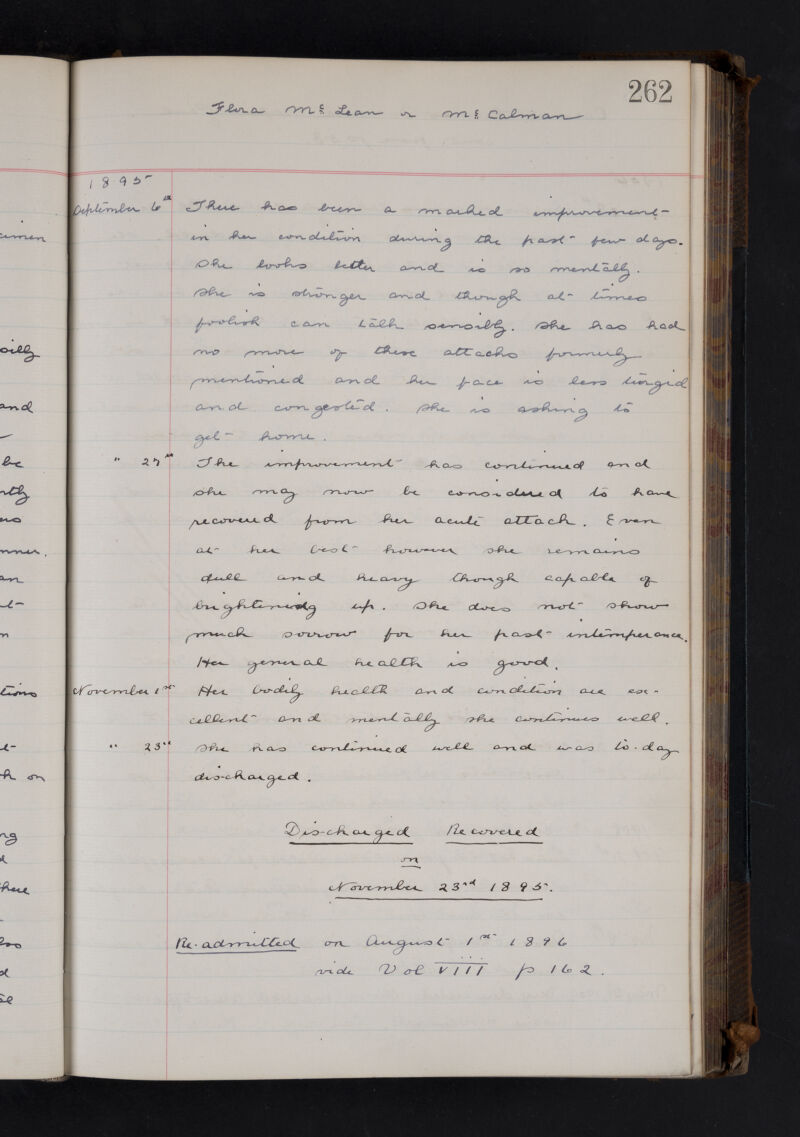 262
Flora Mc Lean or Mc Calman
1895
September 6th There has been a marked improvement
in her condition during the past few days.
She looks better and is so mentally.
She is stronger and though at times
foolish can talk sensibly. She has had
no more of these attacks formerly
mentioned and her face is less turgid
and congested. She is asking to
get home.
" 27th The improvement has continued and
she may now be considered to have
recovered from her acute attack. Even
at her best however she remains
dull and heavy though capable of
brightening up. She does not show
much sorrow for her past intemperance.
Her general health is good.
November 1st Her bodily health and condition are ex-
cellent and mentally she continues well.
" 23rd She has continued well and was to-day
discharged.
Discharged Recovered
on
November 23rd 1895.
Re-admitted on August 1st 1896
vide Vol VIII p 162.